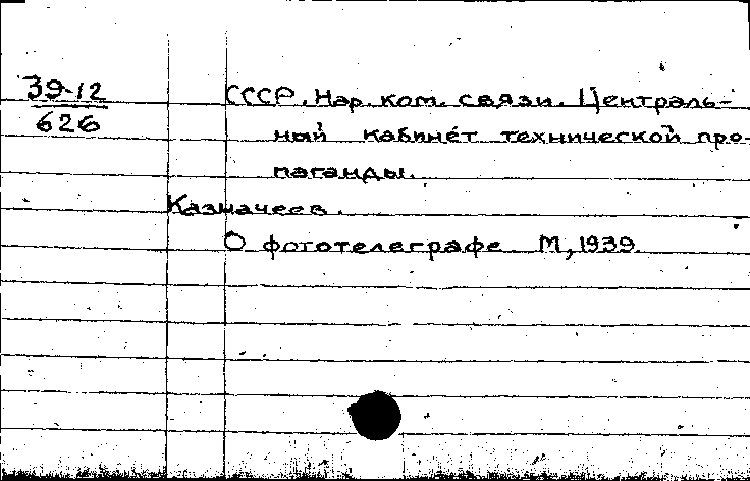 39-12
626
СССР. Нар. ком. связи. Централь-
ный кабинет технической про-
паганды.
Казначеев.
О фототелеграфе М, 1939.